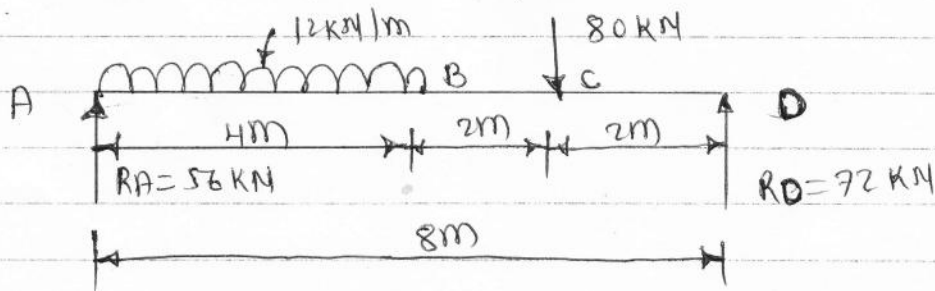 12KN/m 80KN
A B C D
4m 2m 2m
RA=56KN RD=72KN
8m